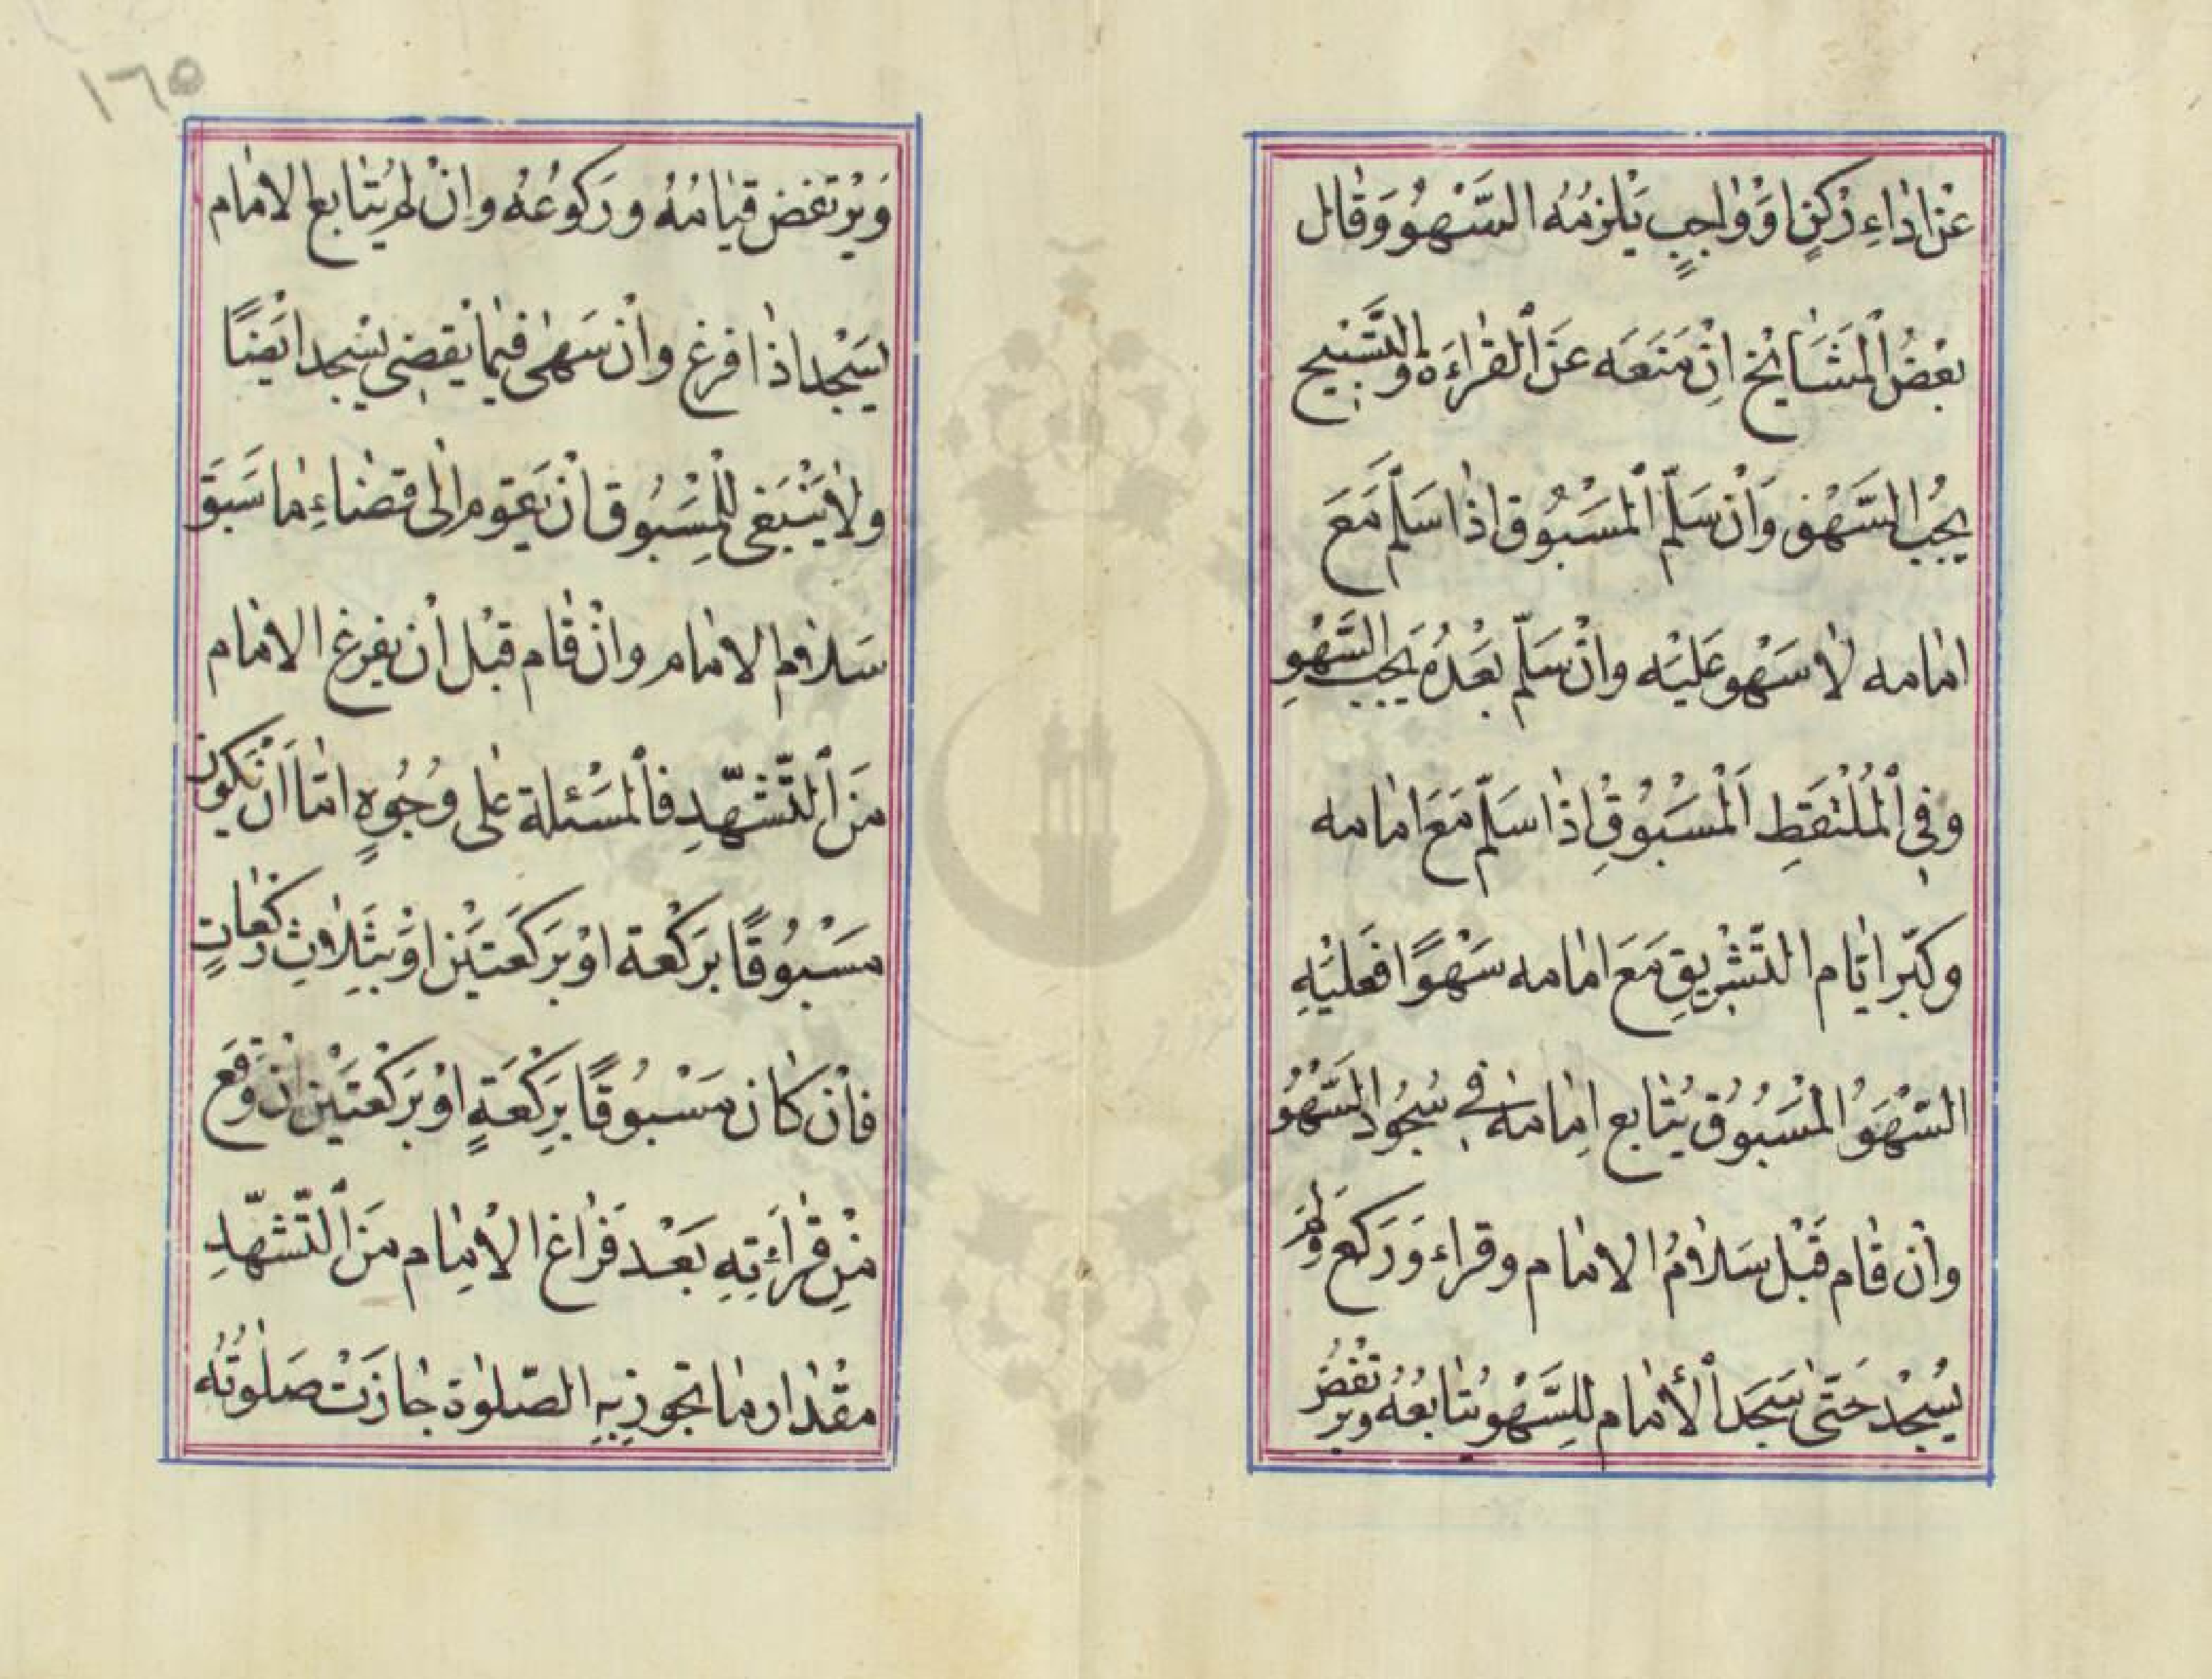 عَنْ اَدٰاءِ رُكْنٍ اَوْ وٰاجِبٍ يَلْزَمُهُ السَّهْوُ وَقٰال
بَعْضُ الْمَشَايِخ اِنْ مَنَعَه عَنَ الْقِرٰاءَة وَالتَّسْبِيح
يَجِبُ السَّهْو وَاَنْ سَلَّمَ الْمَسْبُوق اِذٰا سَلَّمَ مَعَ
اِمٰامه لٰا سَهْو عَلَيْه وانْ سَلَّم بَعْدُهُ يَجِب السَّهْوِ
وفِي الْمُلْتَقَطِ اَلْمَسْبُوقِ اذٰا سَلَّم مَعَ امٰامه
وكَبَّر ايّام التَّشْرِيقِ مَعَ امٰامه سَهْوًا فَعَلَيْهِ
السَّهْوُ الْمَسْبُوق يُتٰابع اِمٰامهٰ فِي سُجُود السَّهْوُ
وانْ قٰام قَبْل سَلٰامُ الامٰام وقراء وَرَكع وَلَمْ
يَسْجُدْ حَتّىٰ سَجَدَ الْأمٰام لِلسَّهْو يُتٰابعُهُ ويرتَفضُ
١٦٥
وَيَرْتَفض قيٰامُهُ ورَكُوعُهُ وانْ لم يُتٰابع الامٰام
يَسْجُد اذٰا فرغ وانْ سَهٰى فيمٰا يَقْضِي يَسْجد ايْضًا
ولٰا يَنْبَغى لِلْمَسْبُوق انْ يَقوم الٰى قضٰاءِ مٰا سَبَقَ
سَلٰام الامٰام وانْ قٰام قَبْل اَنْ يفرغ الامٰام
مَنَ التَّشَهّدِ فالْمَسْئلة عَلٰى وُجُوهٍ امّا اَنْ يَكُون
مَسْبُوقًا بَرَكْعة اوْ بَرَكعَتَيْن اوْ بِثَلٰاثِ رَكْعٰاتٍ
فانْ كٰان مَسْبُوقًا بِرَكْعَةٍ اوْ بَرَكْعَتَيْن انْ وَقَعَ
مْنِ قِرٰاءَتِهِ بَعْد فَرٰاغ الْاِمٰام مَنَ التَّشَهّدِ
مقْدٰار مٰا تجوز بِهِ الصَّلوٰة جٰازَتْ صَلٰوتُهُ